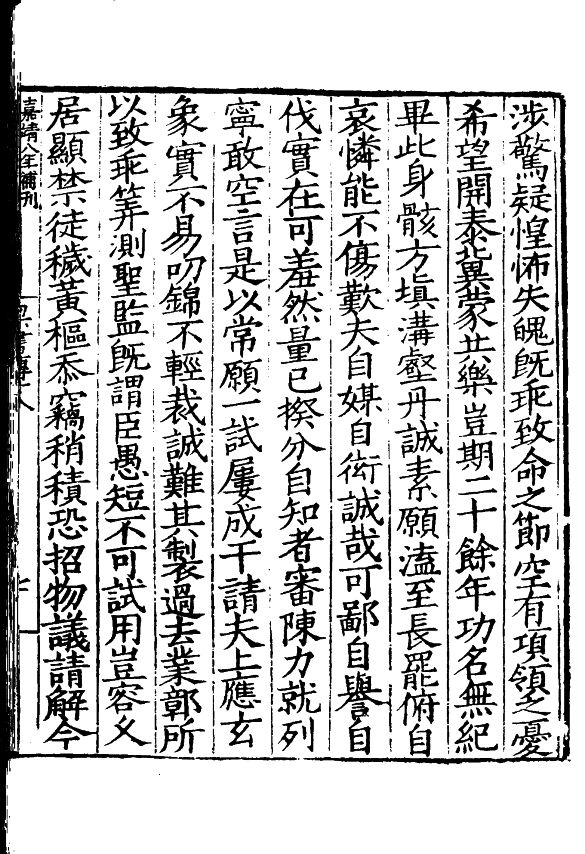 涉驚疑惶怖失魄既乖致命之節空有項領之憂
希望開泰冀蒙共樂豈期二十餘年功名無紀
畢此身骸方填溝壑丹誠素願溘至長罷俯自
哀憐能不傷歎夫自媒自衒誠哉可鄙自譽自
伐實在可羞然量己揆分自知者審陳力就列
寧敢空言是以常願一試屢成干請夫上應玄
象實不易叨錦不輕裁誠難其製過去業鄣所
以致乖筭測聖監旣謂臣愚短不可試用豈容久
居顯禁徒穢黃樞忝竊稍積恐招物議請解今
嘉靖八年補刊